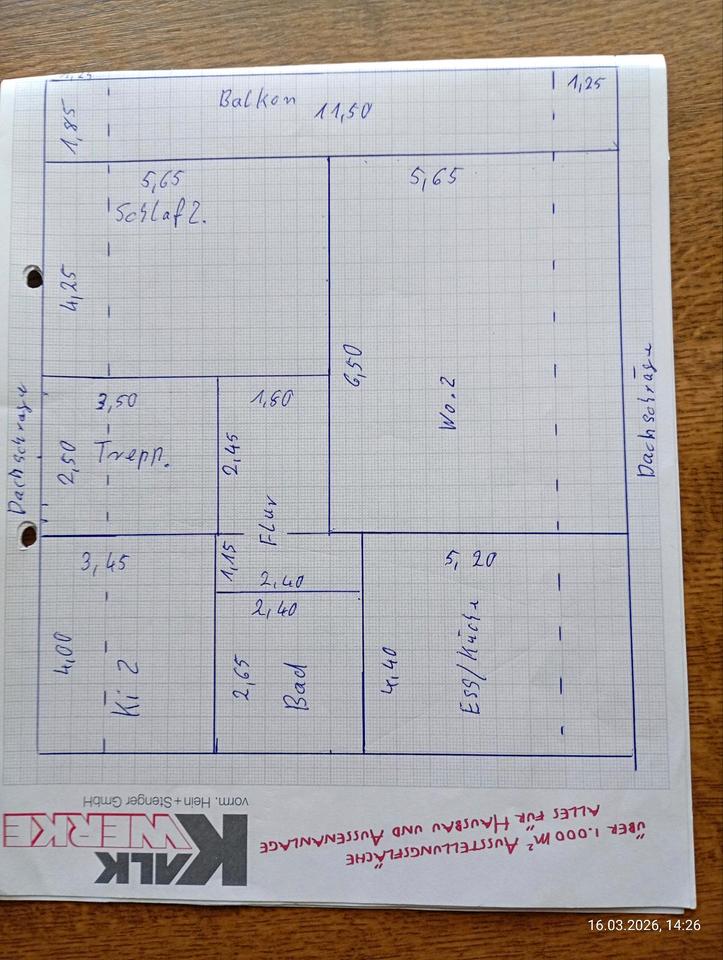 1,25
Balkon
11,50
1,25
1,85
5,65
5,65
Schlafz.
4,25
6,50
Wo.z
Dachschräge
3,50
1,80
2,50
Trepp.
2,45
Flur
Dachschräge
3,45
1,15
2,40
5,20
2,40
4,00
Ki z
2,65
Bad
4,40
Ess/Küche
vorm. Hein+Stenger GmbH
KALK
WERKE
ÜBER 1.000 m² AUSSTELLUNGSFLÄCHE
ALLES FÜR HAUSBAU UND AUSSENANLAGE
16.03.2026, 14:26